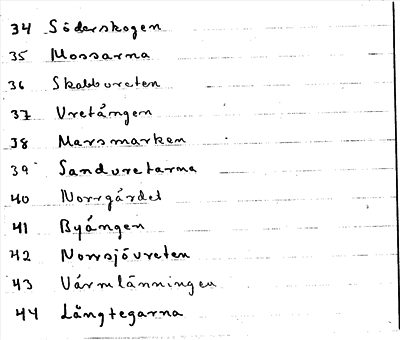 34 Söderskogen
35 Mossarna
36 Skabbvreten
37 Vretången
38 Marsmarken
39 Sandvretarna
40 Norrgärdet
41 Byängen
42 Norrsjövreten
43 Värmlänningen
44 Långtegarna